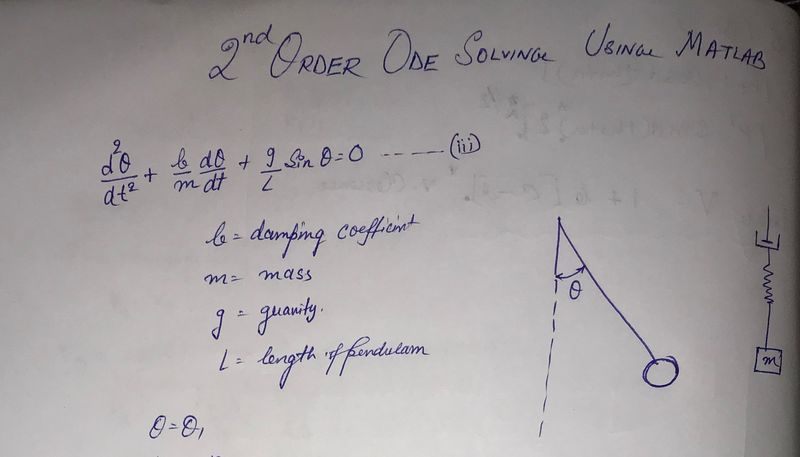 2nd ORDER ODE SOLVING USING MATLAB
d²θ/dt² + b/m dθ/dt + g/L Sin θ = 0 ------ (iii)
b = damping coefficint
m = mass
g = guavity.
L = length of pendulam
θ
m
θ = θ₁